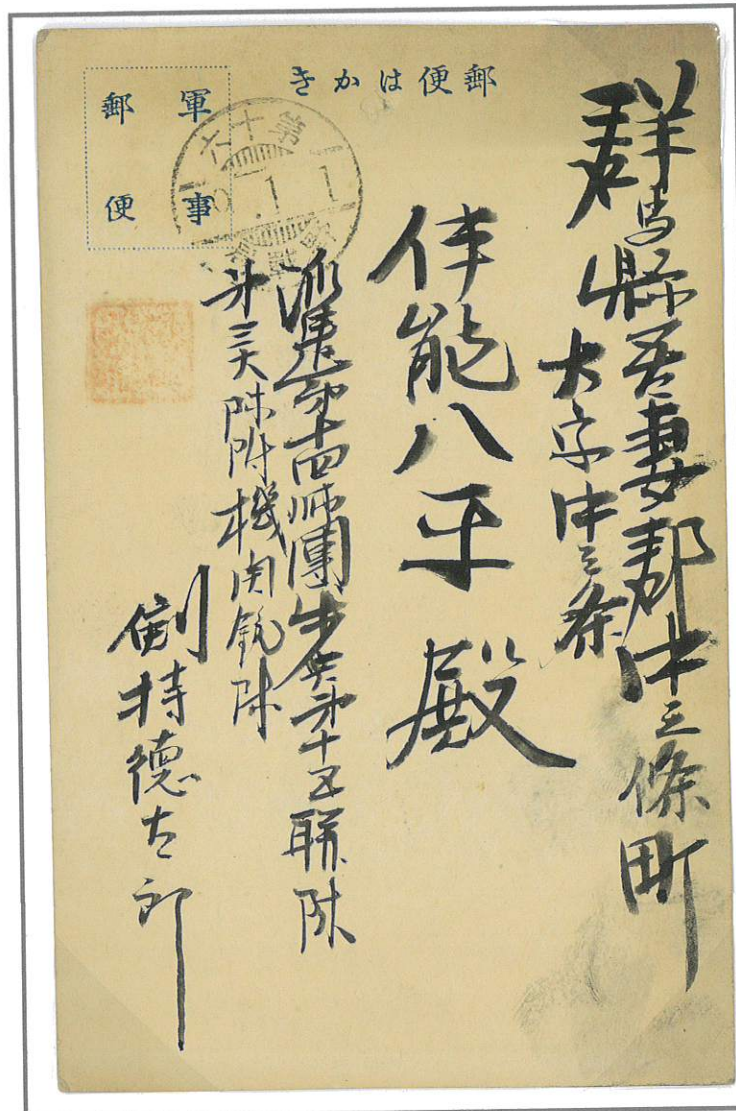 郵便はかき
軍事
郵便
群馬縣吾妻郡中之條町
大字中之条
伊能八平殿
派遣第十四師團歩兵第十五聯隊
第三大隊附機関銃隊
剣持徳太郎
1.1